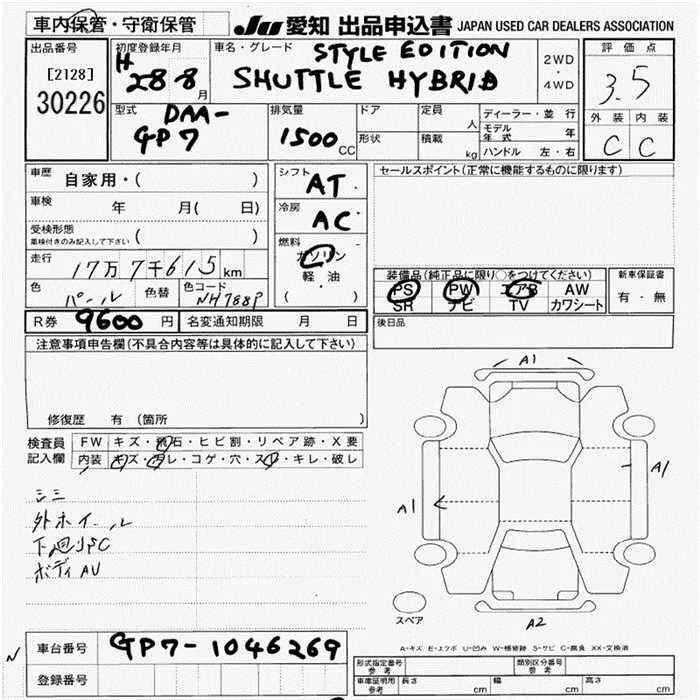 車内保管・守衛保管
JU 愛知 出品申込書 JAPAN USED CAR DEALERS ASSOCIATION
出品番号
[2128]
30226
初度登録年月
H 28 8月
車名・グレード
STYLE EDITION
SHUTTLE HYBRID
2WD
・
4WD
評価点
3.5
外装 内装
C C
型式
DAA-
GP7
排気量
1500 CC
ドア
形状
定員
人
積載
kg
ディーラー・並行
モデル年式 年
ハンドル 左・右
車歴 自家用・( )
車検 年 月( 日)
受検形態
車検付きのみ記入して下さい ( )
走行 17万7千615km
色 パール 色替 色コード NH788P
シフト AT
冷房 AC
燃料
ガソリン
軽・油
( ・ )
セールスポイント(正常に機能するものに限ります)
装備品(純正品に限り○をつけてください)
PS PW エアB AW
SR ナビ TV カワシート
新車保証書
有・無
R券 9600円 名変通知期限 月 日
後日品
注意事項申告欄(不具合内容等は具体的に記入して下さい)
修復歴 有 (箇所 )
検査員記入欄
FW キズ・飛石・ヒビ割・リペア跡・X要
内装 キズ・汚レ・コゲ・穴・スレ・キレ・破レ
シミ
外ホイール
下廻りSC
ボディAU
A1
A1
A1
A2
スペア
A-キズ E-エクボ U-凹み W-補修跡 S-サビ C-腐食 XX-交換済
N
車台番号 GP7-1046269
登録番号
形式指定番号 参考
類別区分番号 参考
車庫証明用 参考 長さ cm 幅 cm 高さ cm